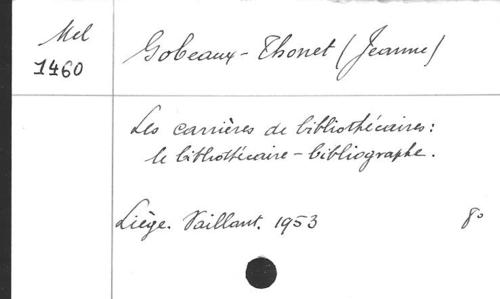 Mel
1460
Gobeaux-Thonet (Jeanne)
Les carrières de bibliothécaires:
le bibliothécaire-bibliographe.
Liège. Vaillant. 1953 8°